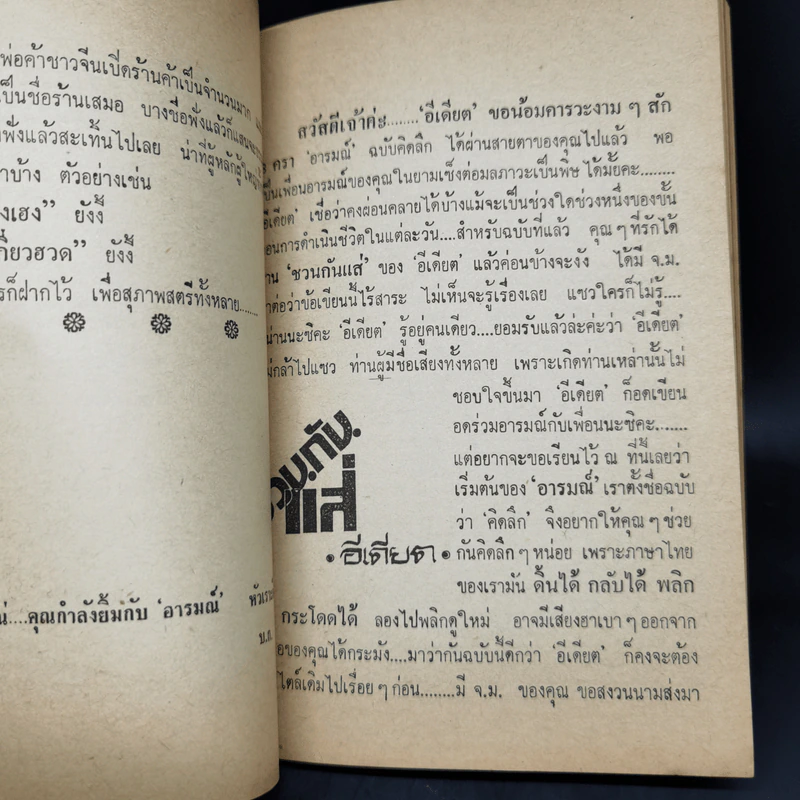 พ่อค้าชาวจีนเปิดร้านค้าเป็นจำนวนมาก
เป็นชื่อร้านเสมอ บางชื่อฟังแล้วก็แสนจะ
ฟังแล้วสะเทิ้นไปเลย น่าที่ผู้หลักผู้ใหญ่
บ้าง ตัวอย่างเช่น
งเฮง” ยังงี้
กี่ยวฮวด” ยังงี้
รก็ฝากไว้ เพื่อสุภาพสตรีทั้งหลาย......
น่....คุณกำลังยิ้มกับ ‘อารมณ์’
สวัสดีเจ้าค่ะ........‘อีเดียต’ ขอน้อมคารวะงาม ๆ สัก
ครา ‘อารมณ์’ ฉบับคิดลึก ได้ผ่านสายตาของคุณไปแล้ว พอ
เป็นเพื่อนอารมณ์ของคุณในยามเซ็งต่อมลภาวะเป็นพิษ ได้มั้ยคะ........
อีเดียต’ เชื่อว่าคงผ่อนคลายได้บ้างแม้จะเป็นช่วงใดช่วงหนึ่งของขั้น
อนการดำเนินชีวิตในแต่ละวัน....สำหรับฉบับที่แล้ว คุณ ๆ ที่รักได้
าน ‘ชวนกันแส่’ ของ ‘อีเดียต’ แล้วค่อนข้างจะงัง ได้มี จ.ม.
าต่อว่าข้อเขียนนี้ไร้สาระ ไม่เห็นจะรู้เรื่องเลย แซวใครก็ไม่รู้....
น่านนะซิคะ ‘อีเดียต’ รู้อยู่คนเดียว....ยอมรับแล้วล่ะค่ะว่า ‘อีเดียต’
ม่กล้าไปแซว ท่านผู้มีชื่อเสียงทั้งหลาย เพราะเกิดท่านเหล่านั้นไม่
ชอบใจขึ้นมา ‘อีเดียต’ ก็อดเขียน
อดร่วมอารมณ์กับเพื่อนนะซิคะ.......
แต่อยากจะขอเรียนไว้ ณ ที่นี้เลยว่า
เริ่มต้นของ ‘อารมณ์’ เราตั้งชื่อฉบับ
ว่า ‘คิดลึก’ จึงอยากให้คุณ ๆ ช่วย
กันคิดลึก ๆ หน่อย เพราะภาษาไทย
ของเรามัน ดิ้นได้ กลับได้ พลิก
วน.กัน.
แส่
•อีเดียต•
กระโดดได้ ลองไปพลิกดูใหม่ อาจมีเสียงฮาเบา ๆ ออกจาก
อของคุณได้กระมัง....มาว่ากันฉบับนี้ดีกว่า ‘อีเดียต’ ก็คงจะต้อง
ไตล์เดิมไปเรื่อย ๆ ก่อน........มี จ.ม. ของคุณ ขอสงวนนามส่งมา